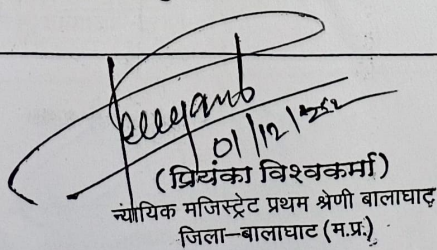 01/12/
(प्रियंका विश्वकर्मा)
न्यायिक मजिस्ट्रेट प्रथम श्रेणी बालाघाट
जिला–बालाघाट (म.प्र.)